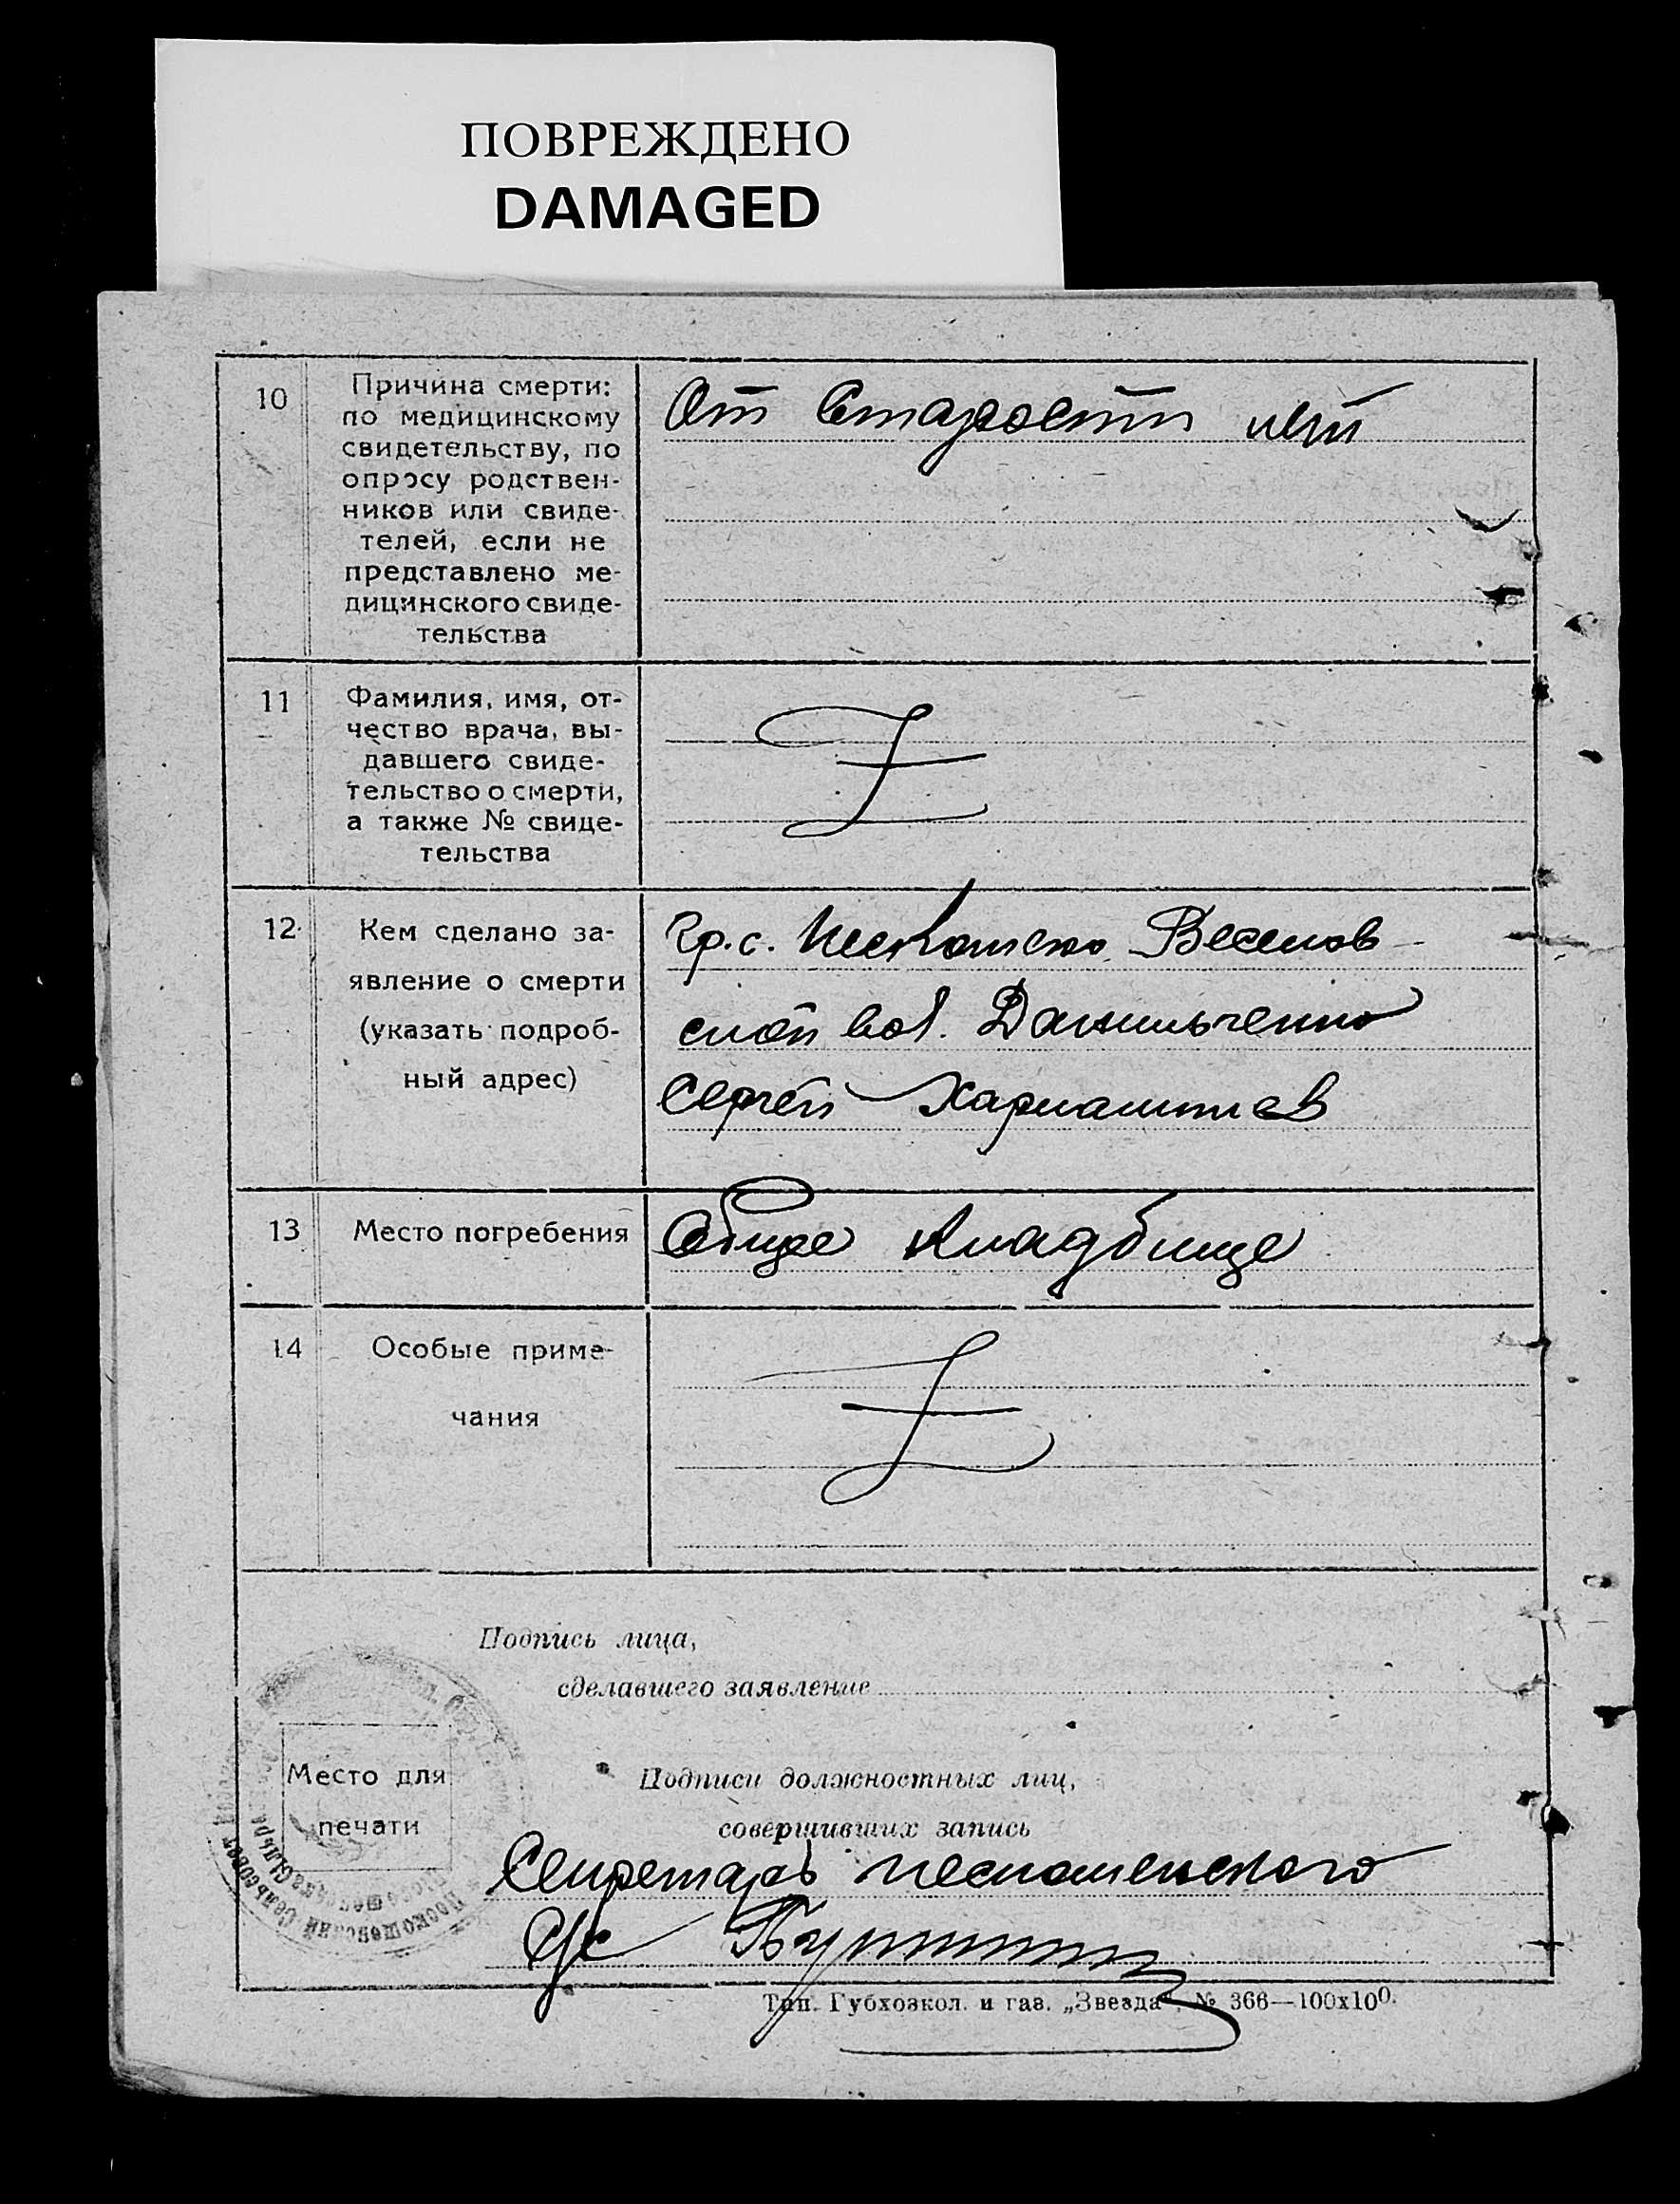 ПОВРЕЖДЕНО
DAMAGED
10
Причина смерти:
по медицинскому
свидетельству, по
опросу родствен-
ников или свиде-
телей, если не
представлено ме-
дицинского свиде-
тельства
От Старости лет
11
Фамилия, имя, от-
чество врача, вы-
давшего свиде-
тельство о смерти,
а также № свиде-
тельства
12
Кем сделано за-
явление о смерти
(указать подроб-
ный адрес)
Гр. с. Веселов
ской вол. Данильченко
Сергей
13
Место погребения
Общее кладбище
14
Особые приме-
чания
Подпись лица,
сделавшего заявление
Место для
печати
Подписи должностных лиц,
совершивших запись
Секретарь
С/с
Тип. Губхозкол. и газ. „Звезда" № 366—100х100.